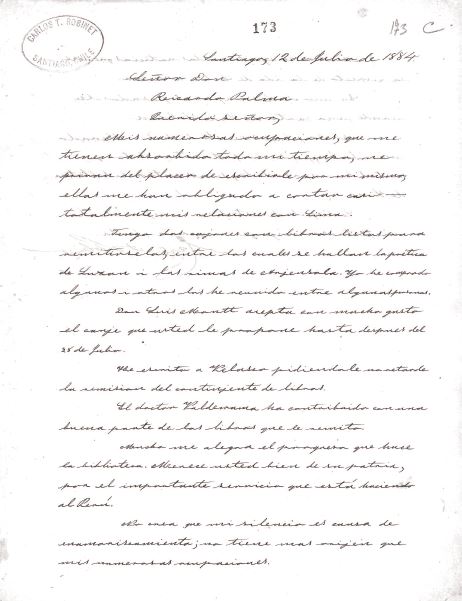 CARLOS T. ROBINET
SANTIAGO, CHILE
173
173 C
Santiago, 12 de Julio de 1884
Señor Don
Ricardo Palma
Querido señor,
Mis numerosas ocupaciones, que me
tienen absorbido todo mi tiempo, me
privan del placer de escribirle por mi mismo,
ellas me han obligado a cortar casi
totalmente mis relaciones con Lima.
Tengo dos cajones con libros listos para
remitirselos, entre los cuales se hallan la poética
de Luzan i las rimas de Arjensola. Yo he comprado
algunos i otros los he reunido entre algunas personas.
Don Luis Montt acepta con mucho gusto
el canje que usted le propone hasta despues del
28 de Julio.
He escrito a Velasco pidiendole no retarde
la remision del continjente de libros.
El doctor Valderrama ha contribuido con una
buena parte de los libros que le remito.
Mucho me alegra el progreso que hace
la biblioteca. Merece usted bien de su patria,
por el importante servicio que está haciendo
al Perú.
No crea que mi silencio es causa de
; no tiene mas orijen que
mis numerosas ocupaciones.